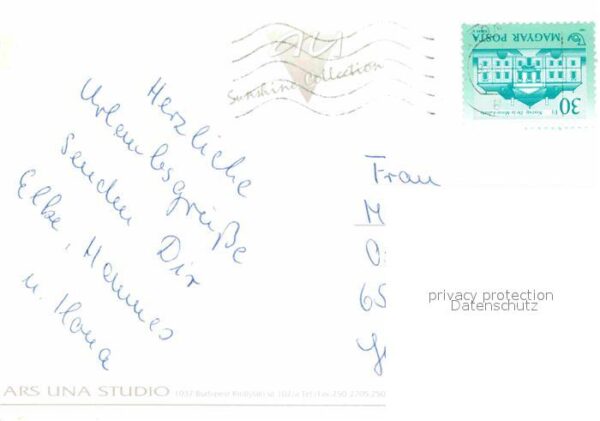 Herzliche
Urlaubsgrüße
senden Dir
Elke, Hannes
u. Ilona
Sunshine Collection
MAGYAR POSTA
30 Ft
Frau
M
O
65
privacy protection
Datenschutz
ARS UNA STUDIO 1037 Budapest